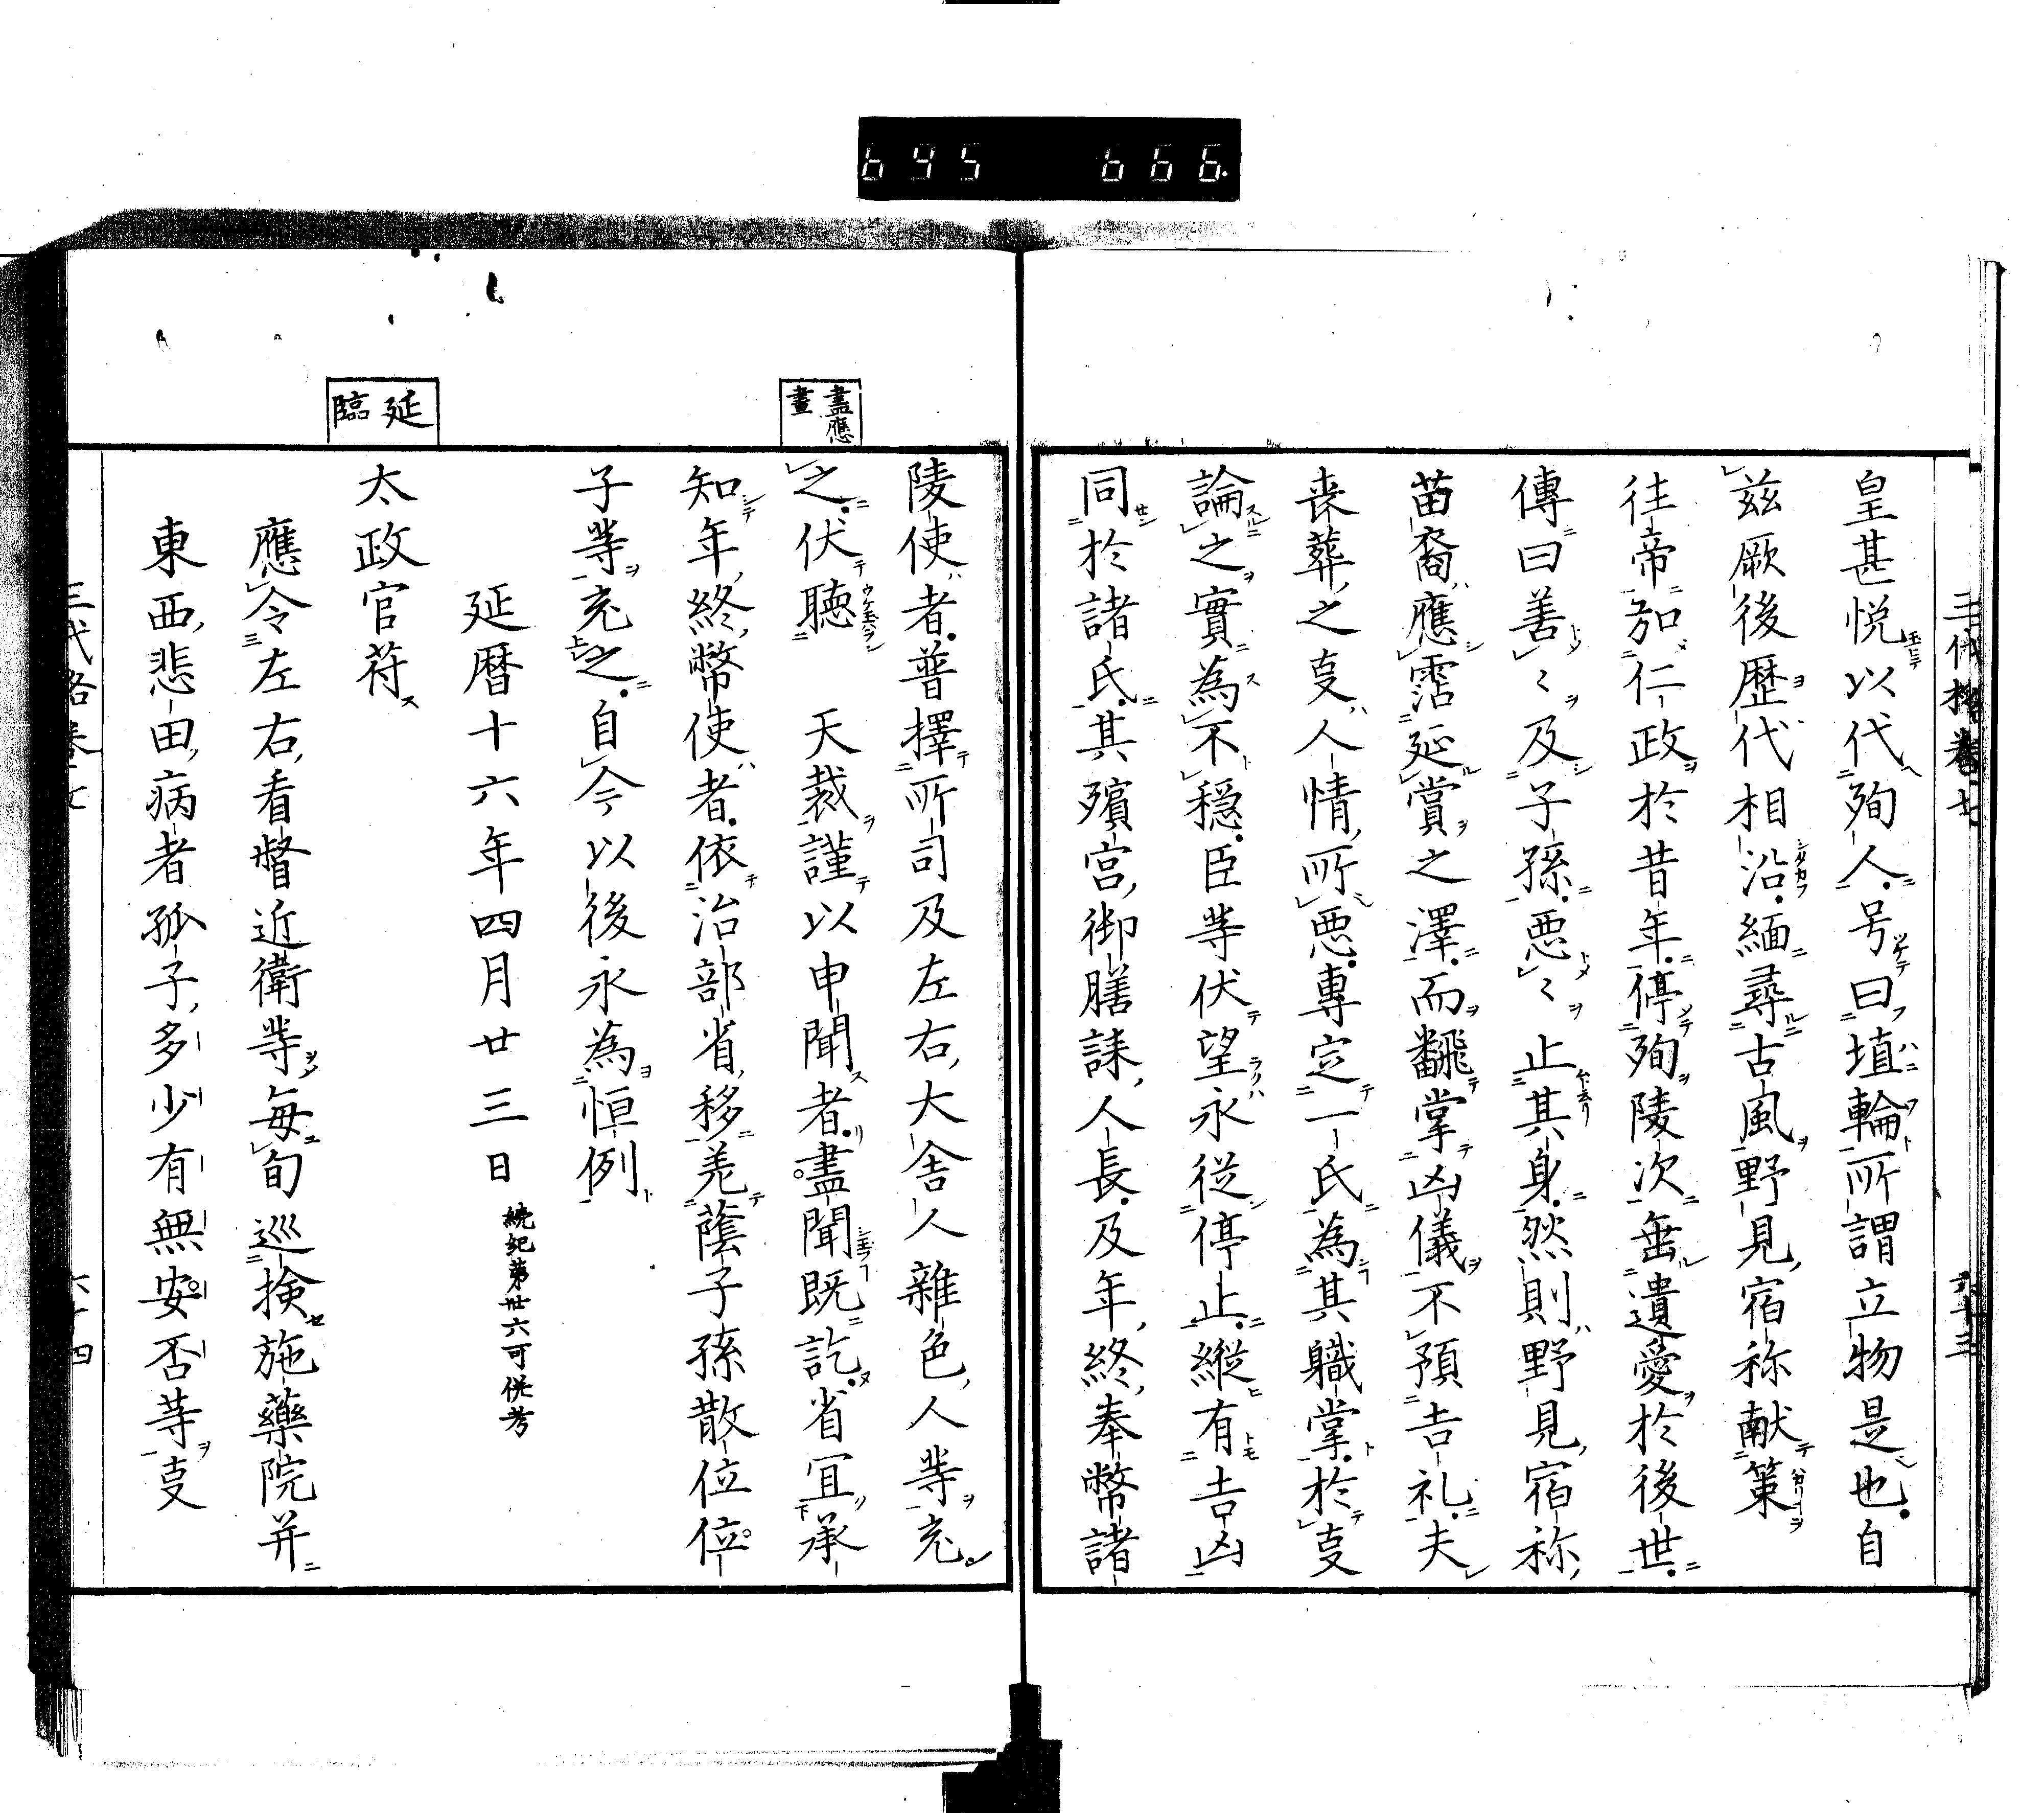 645 666.
三代格卷七 六十三
皇甚悦以代殉人号曰埴輪所謂立物是也自
茲厥後歴代相沿緬尋古風野見宿祢献策
往帝加仁政於昔年停殉陵次垂遺愛於後世
傳曰善〻及子孫悪〻止其身然則野見宿祢
苗裔應霑延賞之澤而飜掌凶儀不預吉礼夫
喪葬之叓人情所悪専定一氏為其職掌於叓
論之實為不穏臣等伏望永従停止縦有吉凶
同於諸氏其殯宮御膳誄人長及年終奉幣諸
盡應
晝
陵使者普擇所司及左右大舎人雜色人等充
之伏聴 天裁謹以申聞者盡聞既訖省冝承
知年終幣使者依治部省移差蔭子孫散位位
子等充之自今以後永為恒例
延暦十六年四月廿三日 続紀第卅六可併考
延
臨
太政官符
應令左右看督近衛等毎旬巡檢施藥院并
東西悲田病者孤子多少有無安否等叓
三代格卷七 六十四